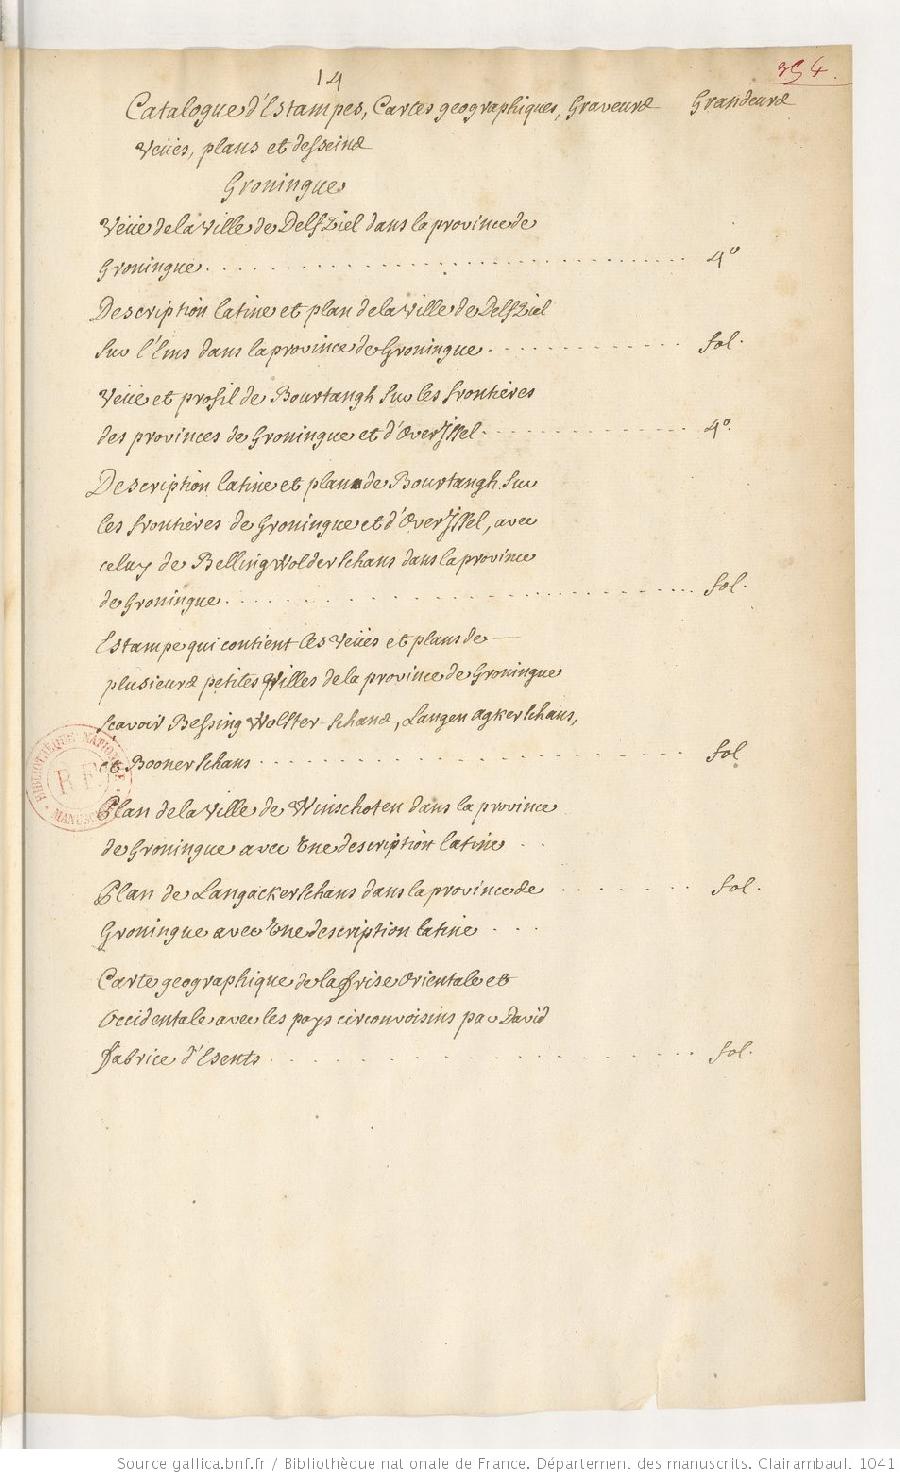 14
354.
Catalogue d'Estampes, Cartes geographiques, Graveures Grandeurs
Veües, plans et desseins
Groningue
Veüe de la Ville de Delfziel dans la province de
Groningue. . . . . . . . . . . . . . . . . . . . . 4°
Description latine et plan de la Ville de Delfziel
sur l'Ems dans la province de Groningue. . . . . . . . fol.
Veüe et profil de Bourtangh sur les frontieres
des provinces de Groningue et d'OverJssel. . . . . . . . 4°.
Description latine et plan de Bourtangh sur
les frontieres de Groningue et d'OverJssel, avec
celuy de BellingWolderschans dans la province
de Groningue. . . . . . . . . . . . . . . . . . . . fol.
Estampe qui contient les Veües et plans de
plusieurs petites Villes de la province de Groningue
scavoir Bessing Wolster-schans, Langen agkerschans,
et Boonerschans . . . . . . . . . . . . . . . . . . fol
Plan de la Ville de Winschoten dans la province
de Groningue avec Une description latine . .
Plan de Langackerschans dans la province de . . . . . . fol.
Groningue avec Une description latine . . .
Carte geographique de la frise Orientale et
Occidentale avec les pays circonvoisins par David
fabrice d'Esents . . . . . . . . . . . . . . . . . fol.
BIBLIOTHEQUE NATIONALE
R F
MANUSCRITS
Source gallica.bnf.fr / Bibliothèque nationale de France. Département des manuscrits. Clairambault 1041